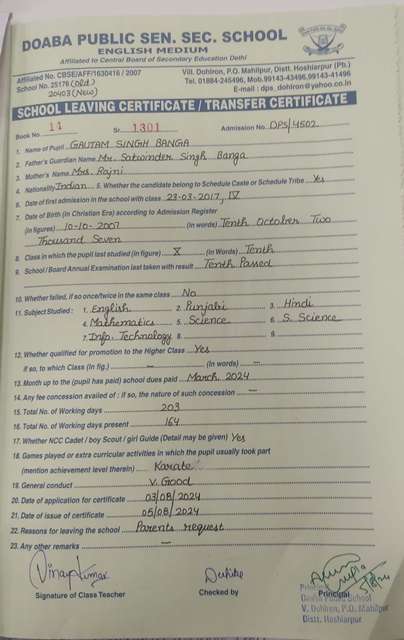 DOABA PUBLIC SEN. SEC. SCHOOL
ENGLISH MEDIUM
Affiliated to Central Board of Secondary Education Delhi
Affiliated No. CBSE/AFF/1630416 / 2007
School No. 25176 (Old)
20403 (New)
Vill. Dohlron, P.O. Mahilpur, Distt. Hoshiarpur (Pb.)
Tel. 01884-245496, Mob.99143-43496,99143-41496
E-mail : dps_dohlron@yahoo.co.in
SCHOOL LEAVING CERTIFICATE / TRANSFER CERTIFICATE
Book No. 11 Sr. 1301 Admission No. DPS/4502
1. Name of Pupil GAUTAM SINGH BANGA
2. Father's/Guardian Name Mr. Satwinder Singh Banga
3. Mother's Name Mrs. Rajni
4. Nationality Indian 5. Whether the candidate belong to Schedule Caste or Schedule Tribe Yes
6. Date of first admission in the school with class 23-03-2017, IV
7. Date of Birth (in Christian Era) according to Admission Register
(in figures) 10-10-2007 (in words) Tenth October Two
Thousand Seven
8. Class in which the pupil last studied (in figure) X (in Words) Tenth
9. School / Board Annual Examination last taken with result Tenth Passed
10. Whether failed, if so once/twice in the same class No
11. Subject Studied : 1. English 2. Punjabi 3. Hindi
4. Mathematics 5. Science 6. S. Science
7. Info. Technology 8. 9.
12. Whether qualified for promotion to the Higher Class Yes
if so, to which Class (In fig.) — (In words) —
13. Month up to the (pupil has paid) school dues paid March, 2024
14. Any fee concession availed of : if so, the nature of such concession —
15. Total No. of Working days 203
16. Total No. of Working days present 164
17. Whether NCC Cadet / boy Scout / girl Guide (Detail may be given) Yes
18. Games played or extra curricular activities in which the pupil usually took part
(mention achievement level therein) Karate
19. General conduct V. Good
20. Date of application for certificate 03/08/2024
21. Date of issue of certificate 05/08/2024
22. Reasons for leaving the school Parents request
23. Any other remarks —
Vinay Kumar
Signature of Class Teacher
Checked by
Principal
Principal
Doaba Public School
V. Dohlron, P.O. Mahilpur
Distt. Hoshiarpur